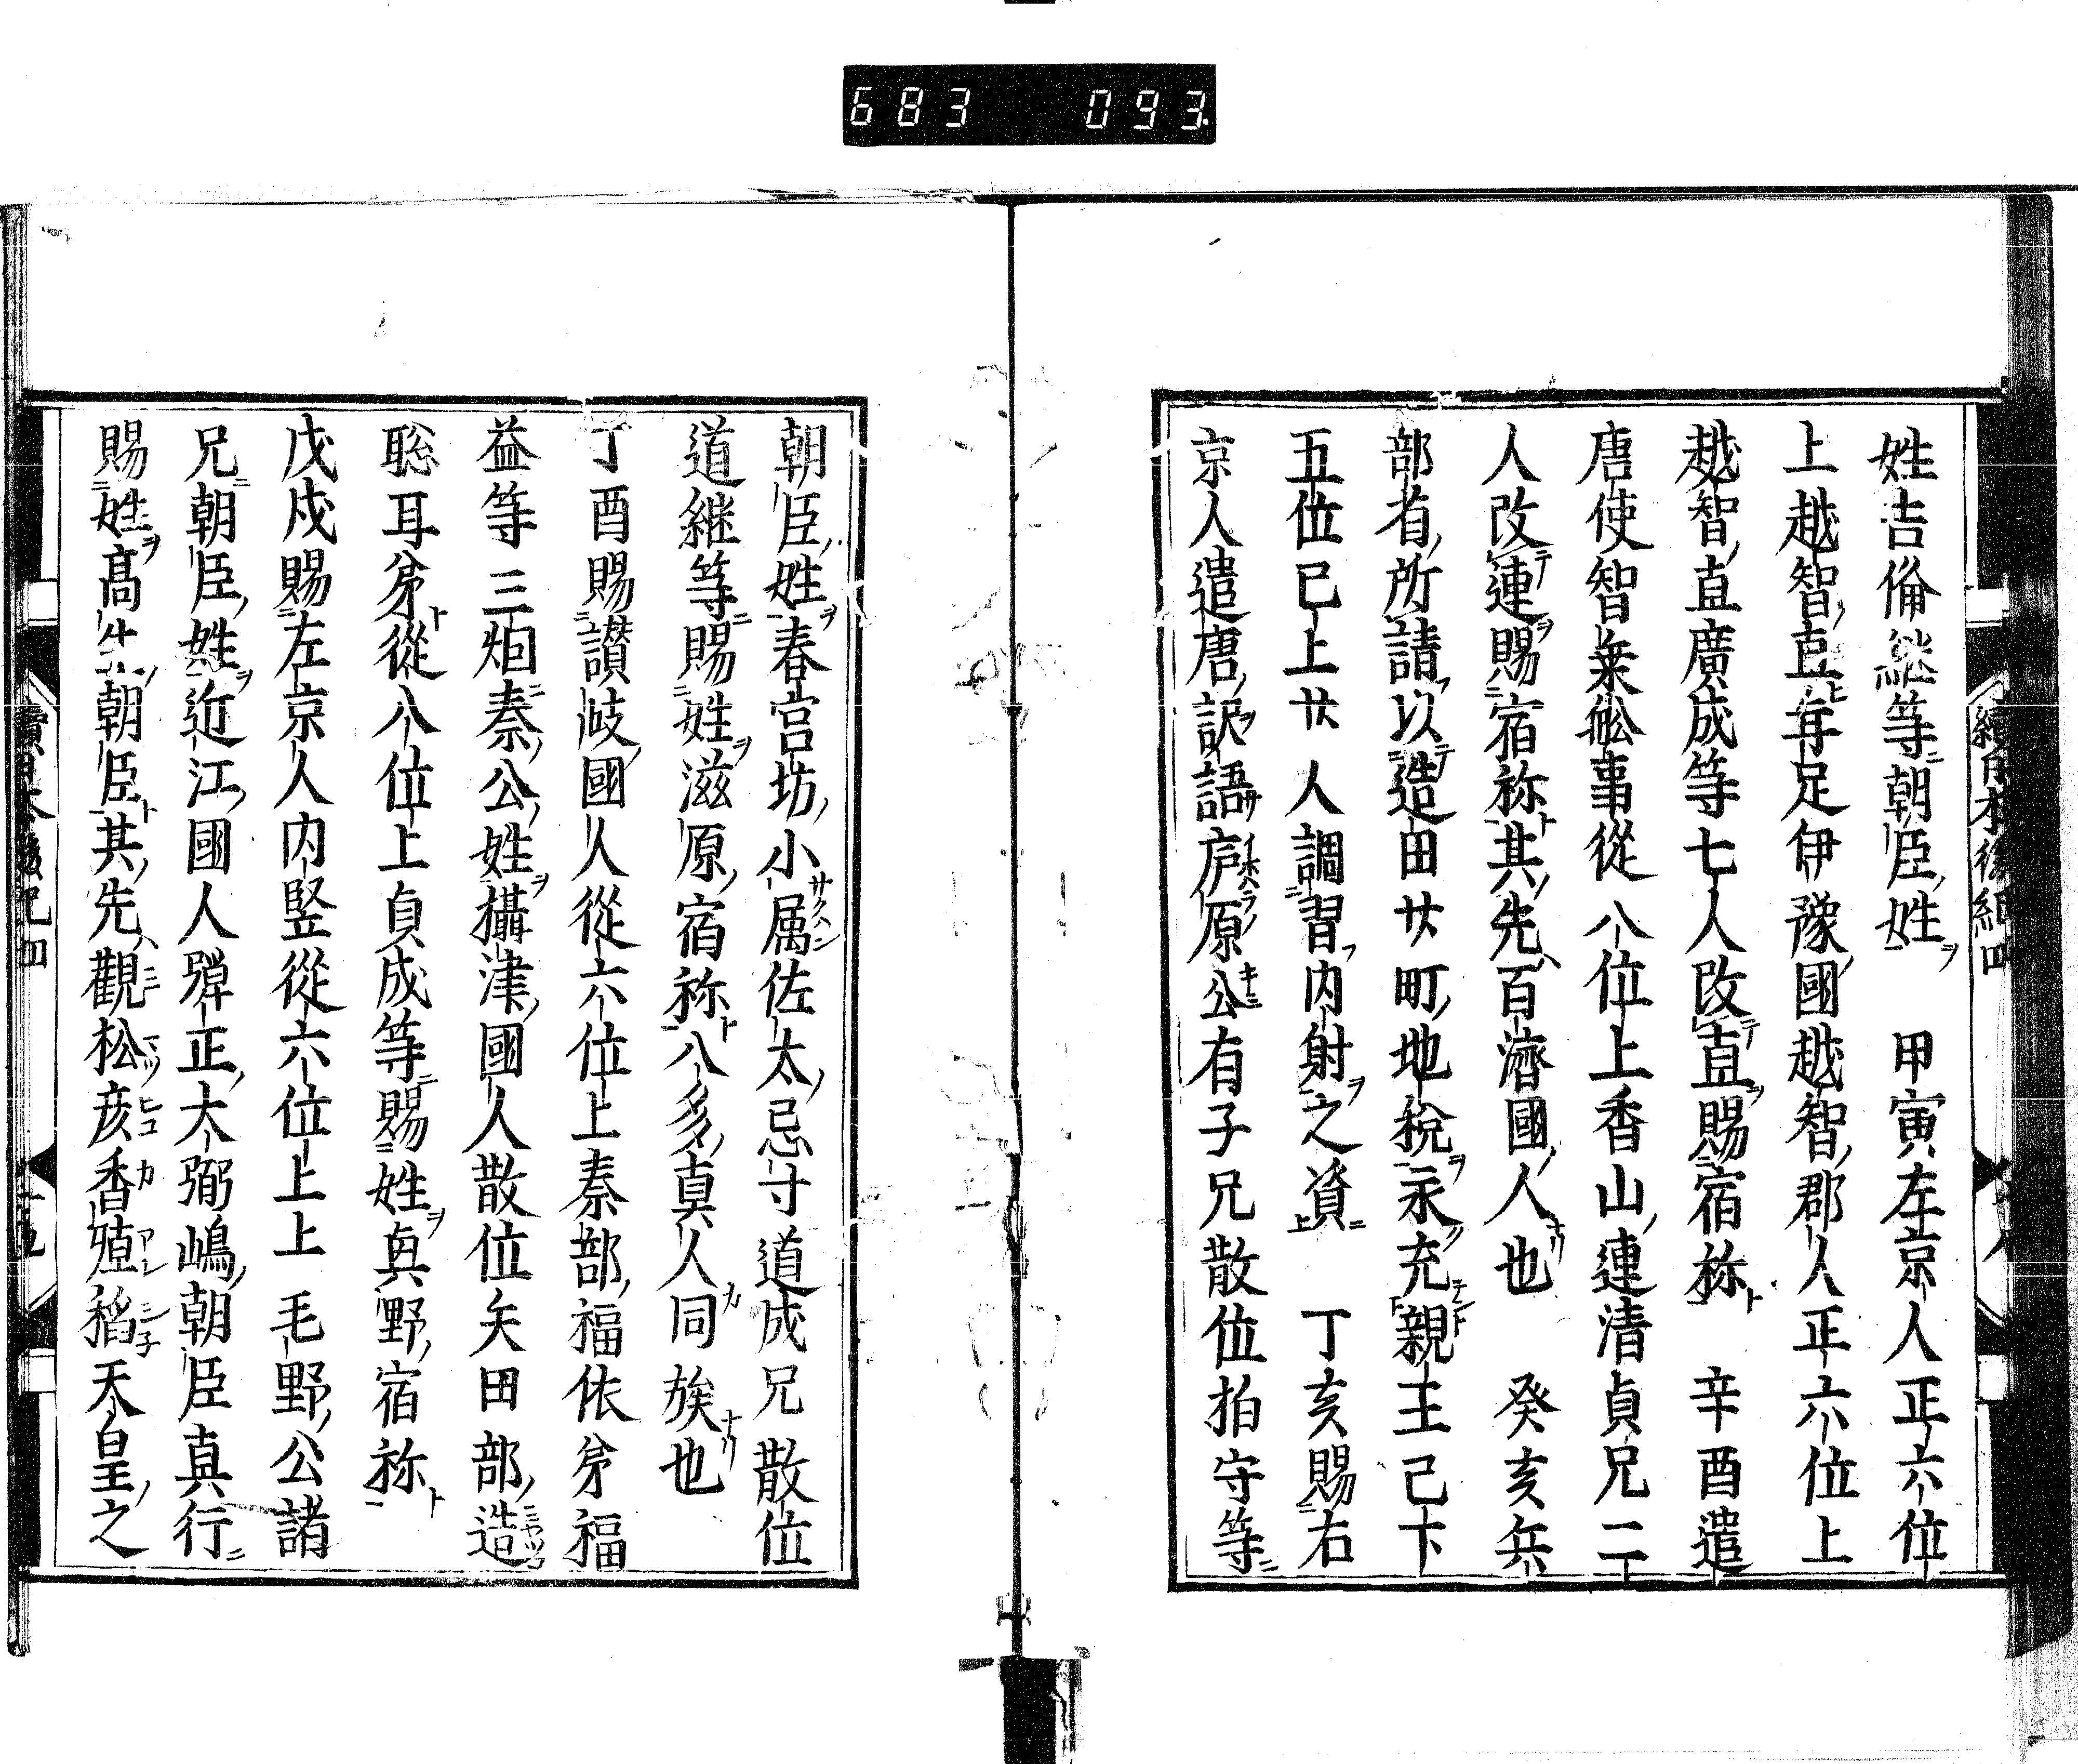 683 093
姓吉倫継等朝臣姓 甲寅左京人正六位
上越智直年足伊豫國越智郡人正六位上
越智直廣成等七人改直賜宿祢 辛酉遣
唐使知乗舩事從八位上香山連清貞兄二
人改連賜宿祢其先百濟國人也 癸亥兵
部省所請以造田廿町地税永充親王已下
五位已上廿人調習内射之資 丁亥賜右
京人遣唐訳語庐原公有子兄散位柏守等
朝臣姓春宮坊小属佐太忌寸道成兄散位
道継等賜姓滋原宿祢八多真人同族也
丁酉賜讃岐國人從六位上秦部福依弟福
益等三烟秦公姓攝津國人散位矢田部造
聡耳弟從八位上貞成等賜姓興野宿祢
戊戍賜左京人内竪從六位上上毛野公諸
兄朝臣姓近江國人彈正大弼嶋朝臣真行
賜姓髙生朝臣其先觀松彦香殖稻天皇之
續日本後紀四